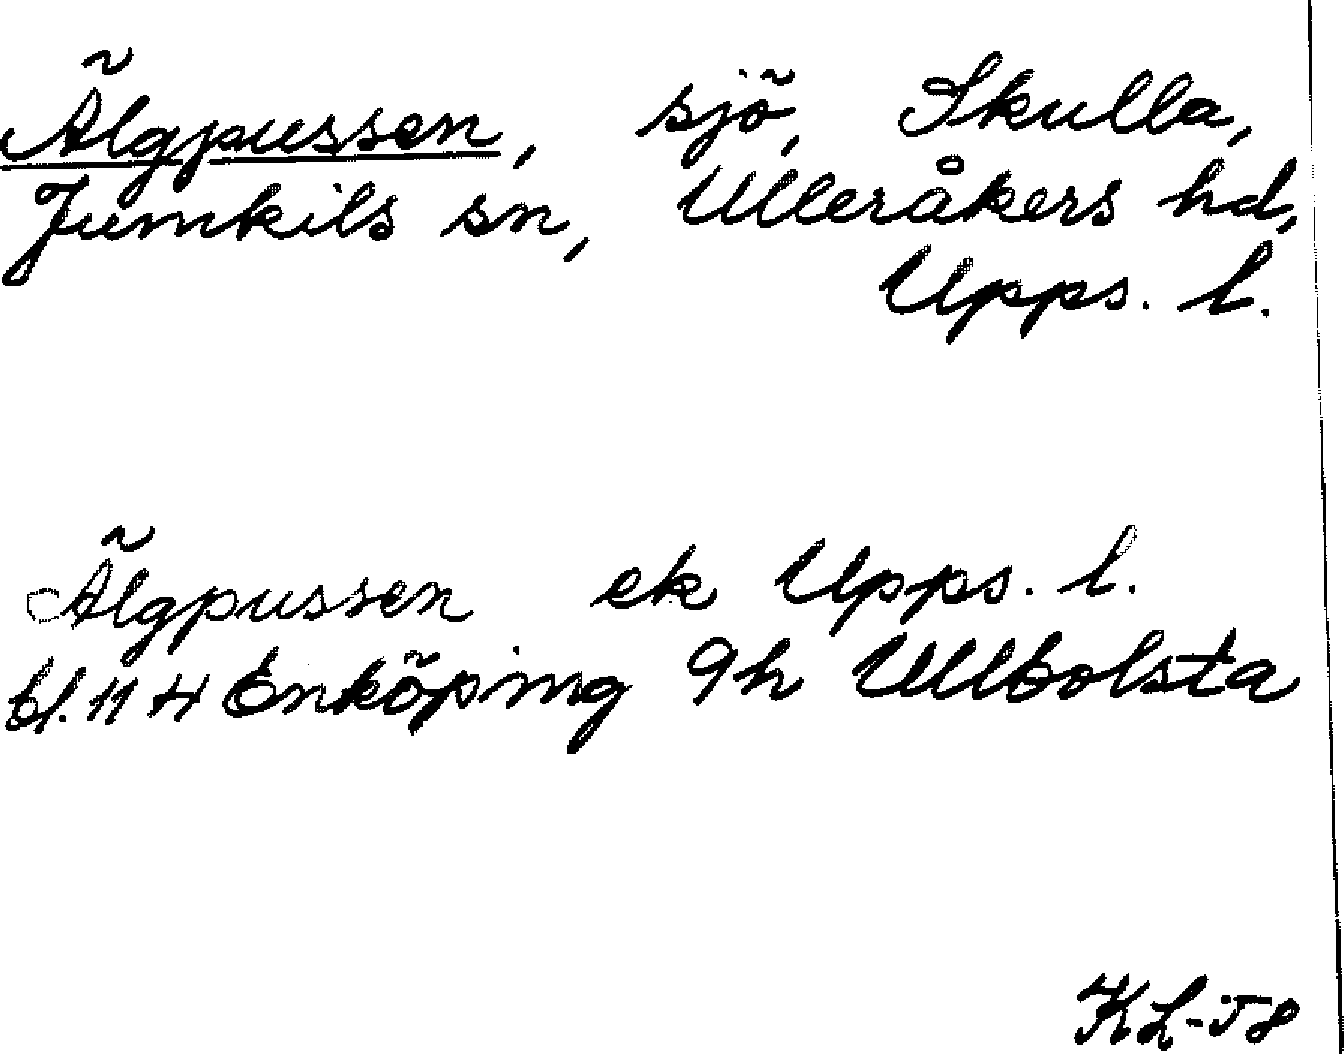 Älgpussen, sjö, Skulla,
Jumkils sn, Ulleråkers hd,
Upps. l.
Älgpussen ek Upps. l.
bl. 11 H Enköping 9h Ullbolsta
KL-58